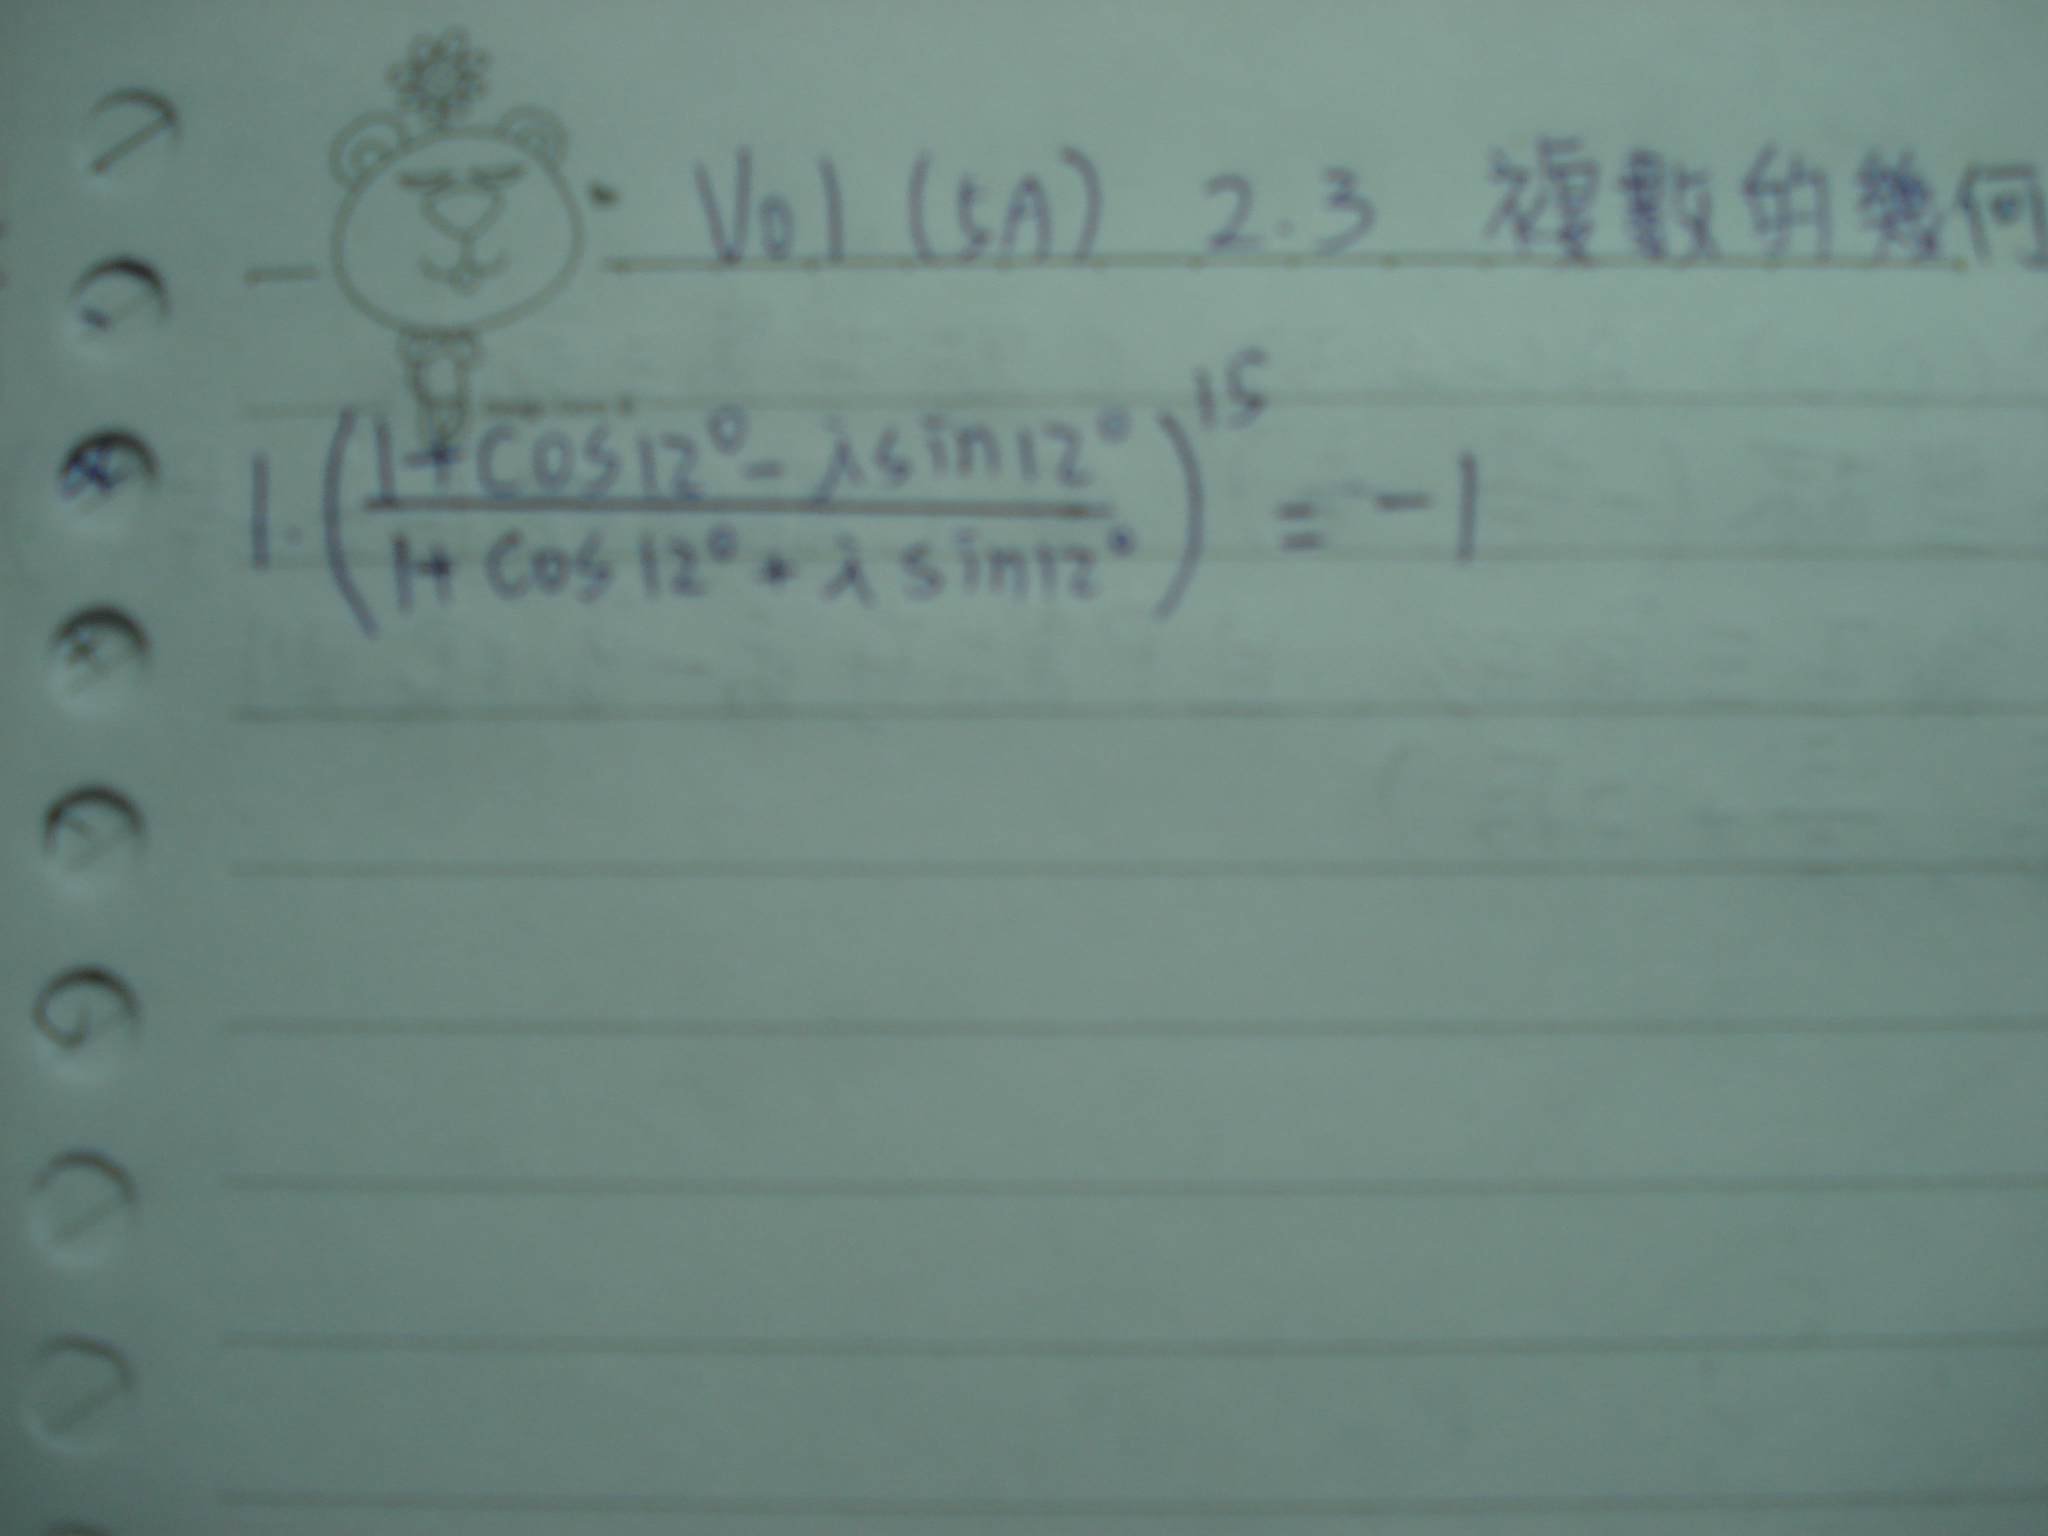 Vol (5A) 2.3 複數的幾何
1. (1+cos12° - i sin12° / 1+cos12° + i sin12°)^15 = -1